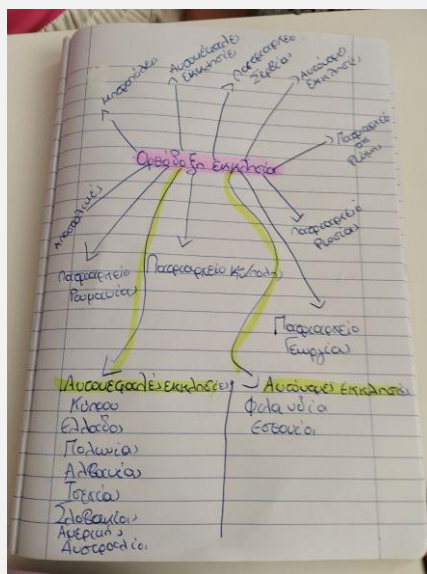 Μητροπόλεις
Αυτοκέφαλες
Εκκλησίες
Πατριαρχείο
Σερβίας
Αυτόνομες
Εκκλησίες
Πατριαρχείο
Ρώσης
Ορθόδοξη εκκλησία
Πατριαρχείο
Ρωσίας
Πατριαρχείο
Ρουμανίας
Πατριαρχείο Κων/πολης
Πατριαρχείο
Γεωργίας
Αυτοκέφαλές εκκλησίες
Κύπρου
Ελλάδος
Πολωνίας
Αλβανίας
Τσεχίας
Σλοβακίας
Αμερικής
Αυστραλίας
Αυτόνομες Εκκλησίες
Φιλανδία
Εσθονίας